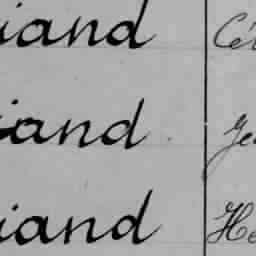 iand Cé
iand Je
iand He